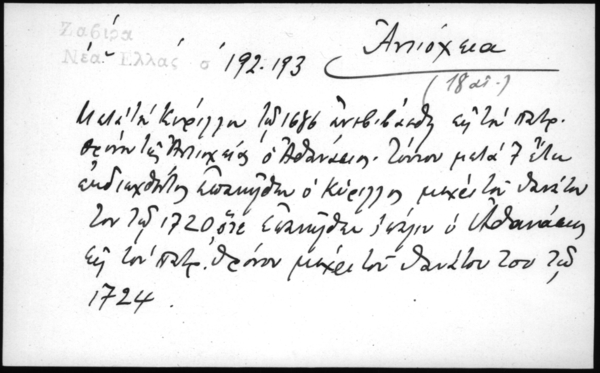 Ζαβίρα
Νέα Ἑλλάς σ 192-193 Ἀντιόχεια
(18 αἰ.)
Μετὰ τὸν Κύριλλον τῷ 1686 ἀνεβιβάσθη εἰς τὸν πατρ.
θρόνον τῆς Ἀντιοχείας ὁ Ἀθανάσιος. Τούτου μετὰ 7 ἔτη
ἐκδιωχθέντος ἐπανῆλθεν ὁ Κύριλλος μέχρι τοῦ θανάτου
του τῷ 1720 ὅτε ἐπανῆλθεν πάλιν ὁ Ἀθανάσιος
εἰς τὸν πατρ. θρόνον μέχρι τοῦ θανάτου του τῷ
1724.